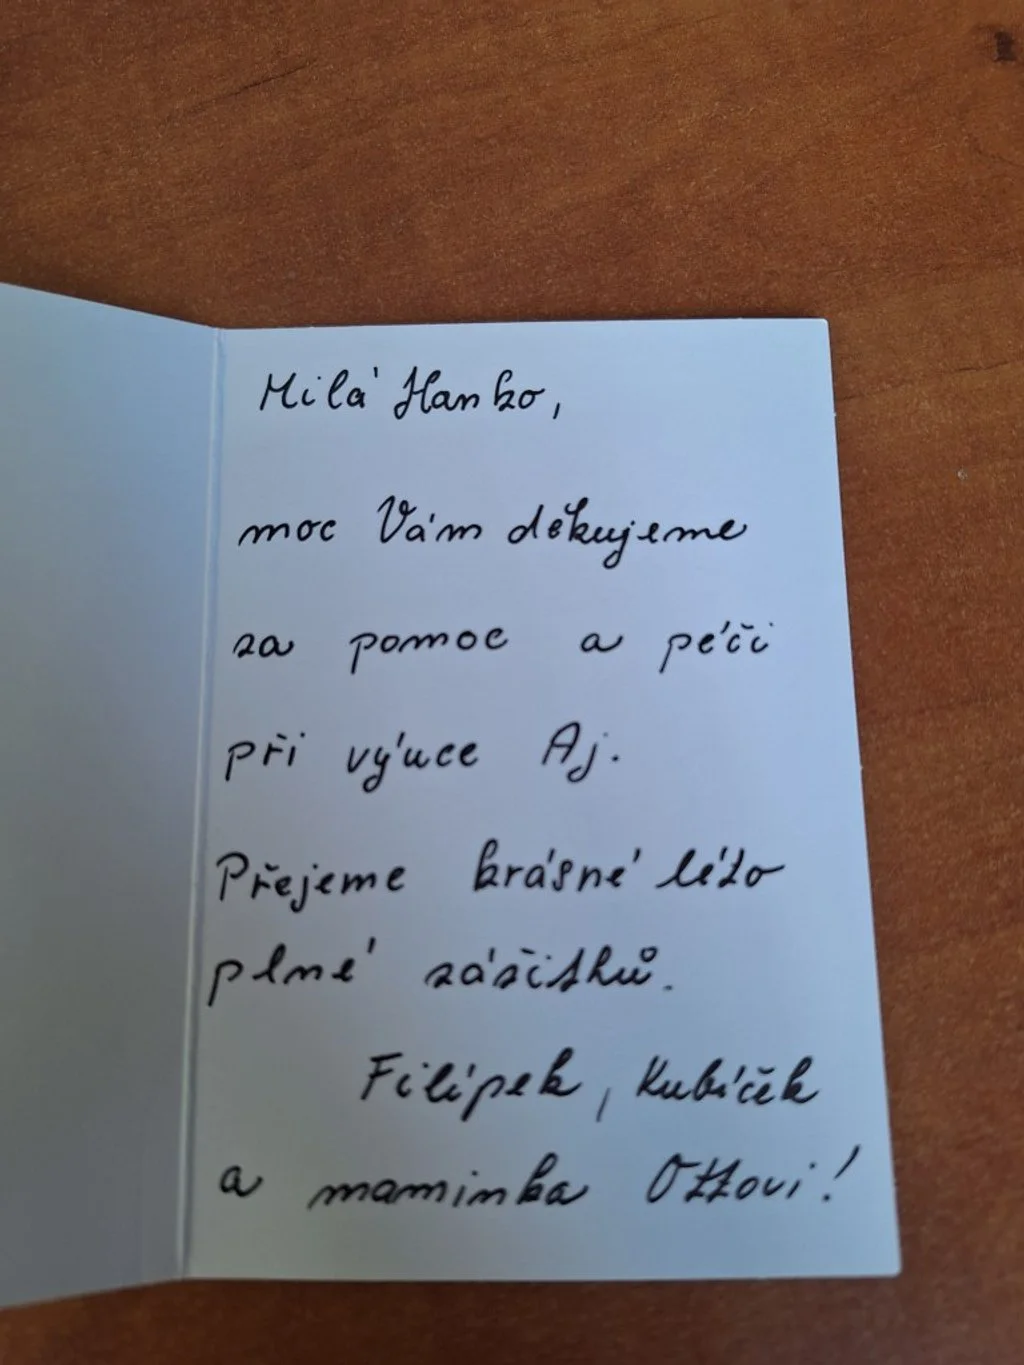 Milá Hanko,
moc Vám děkujeme
za pomoc a péči
při výuce Aj.
Přejeme krásné léto
plné zážitků.
Filípek, Kubíček
a maminka Ottovi!